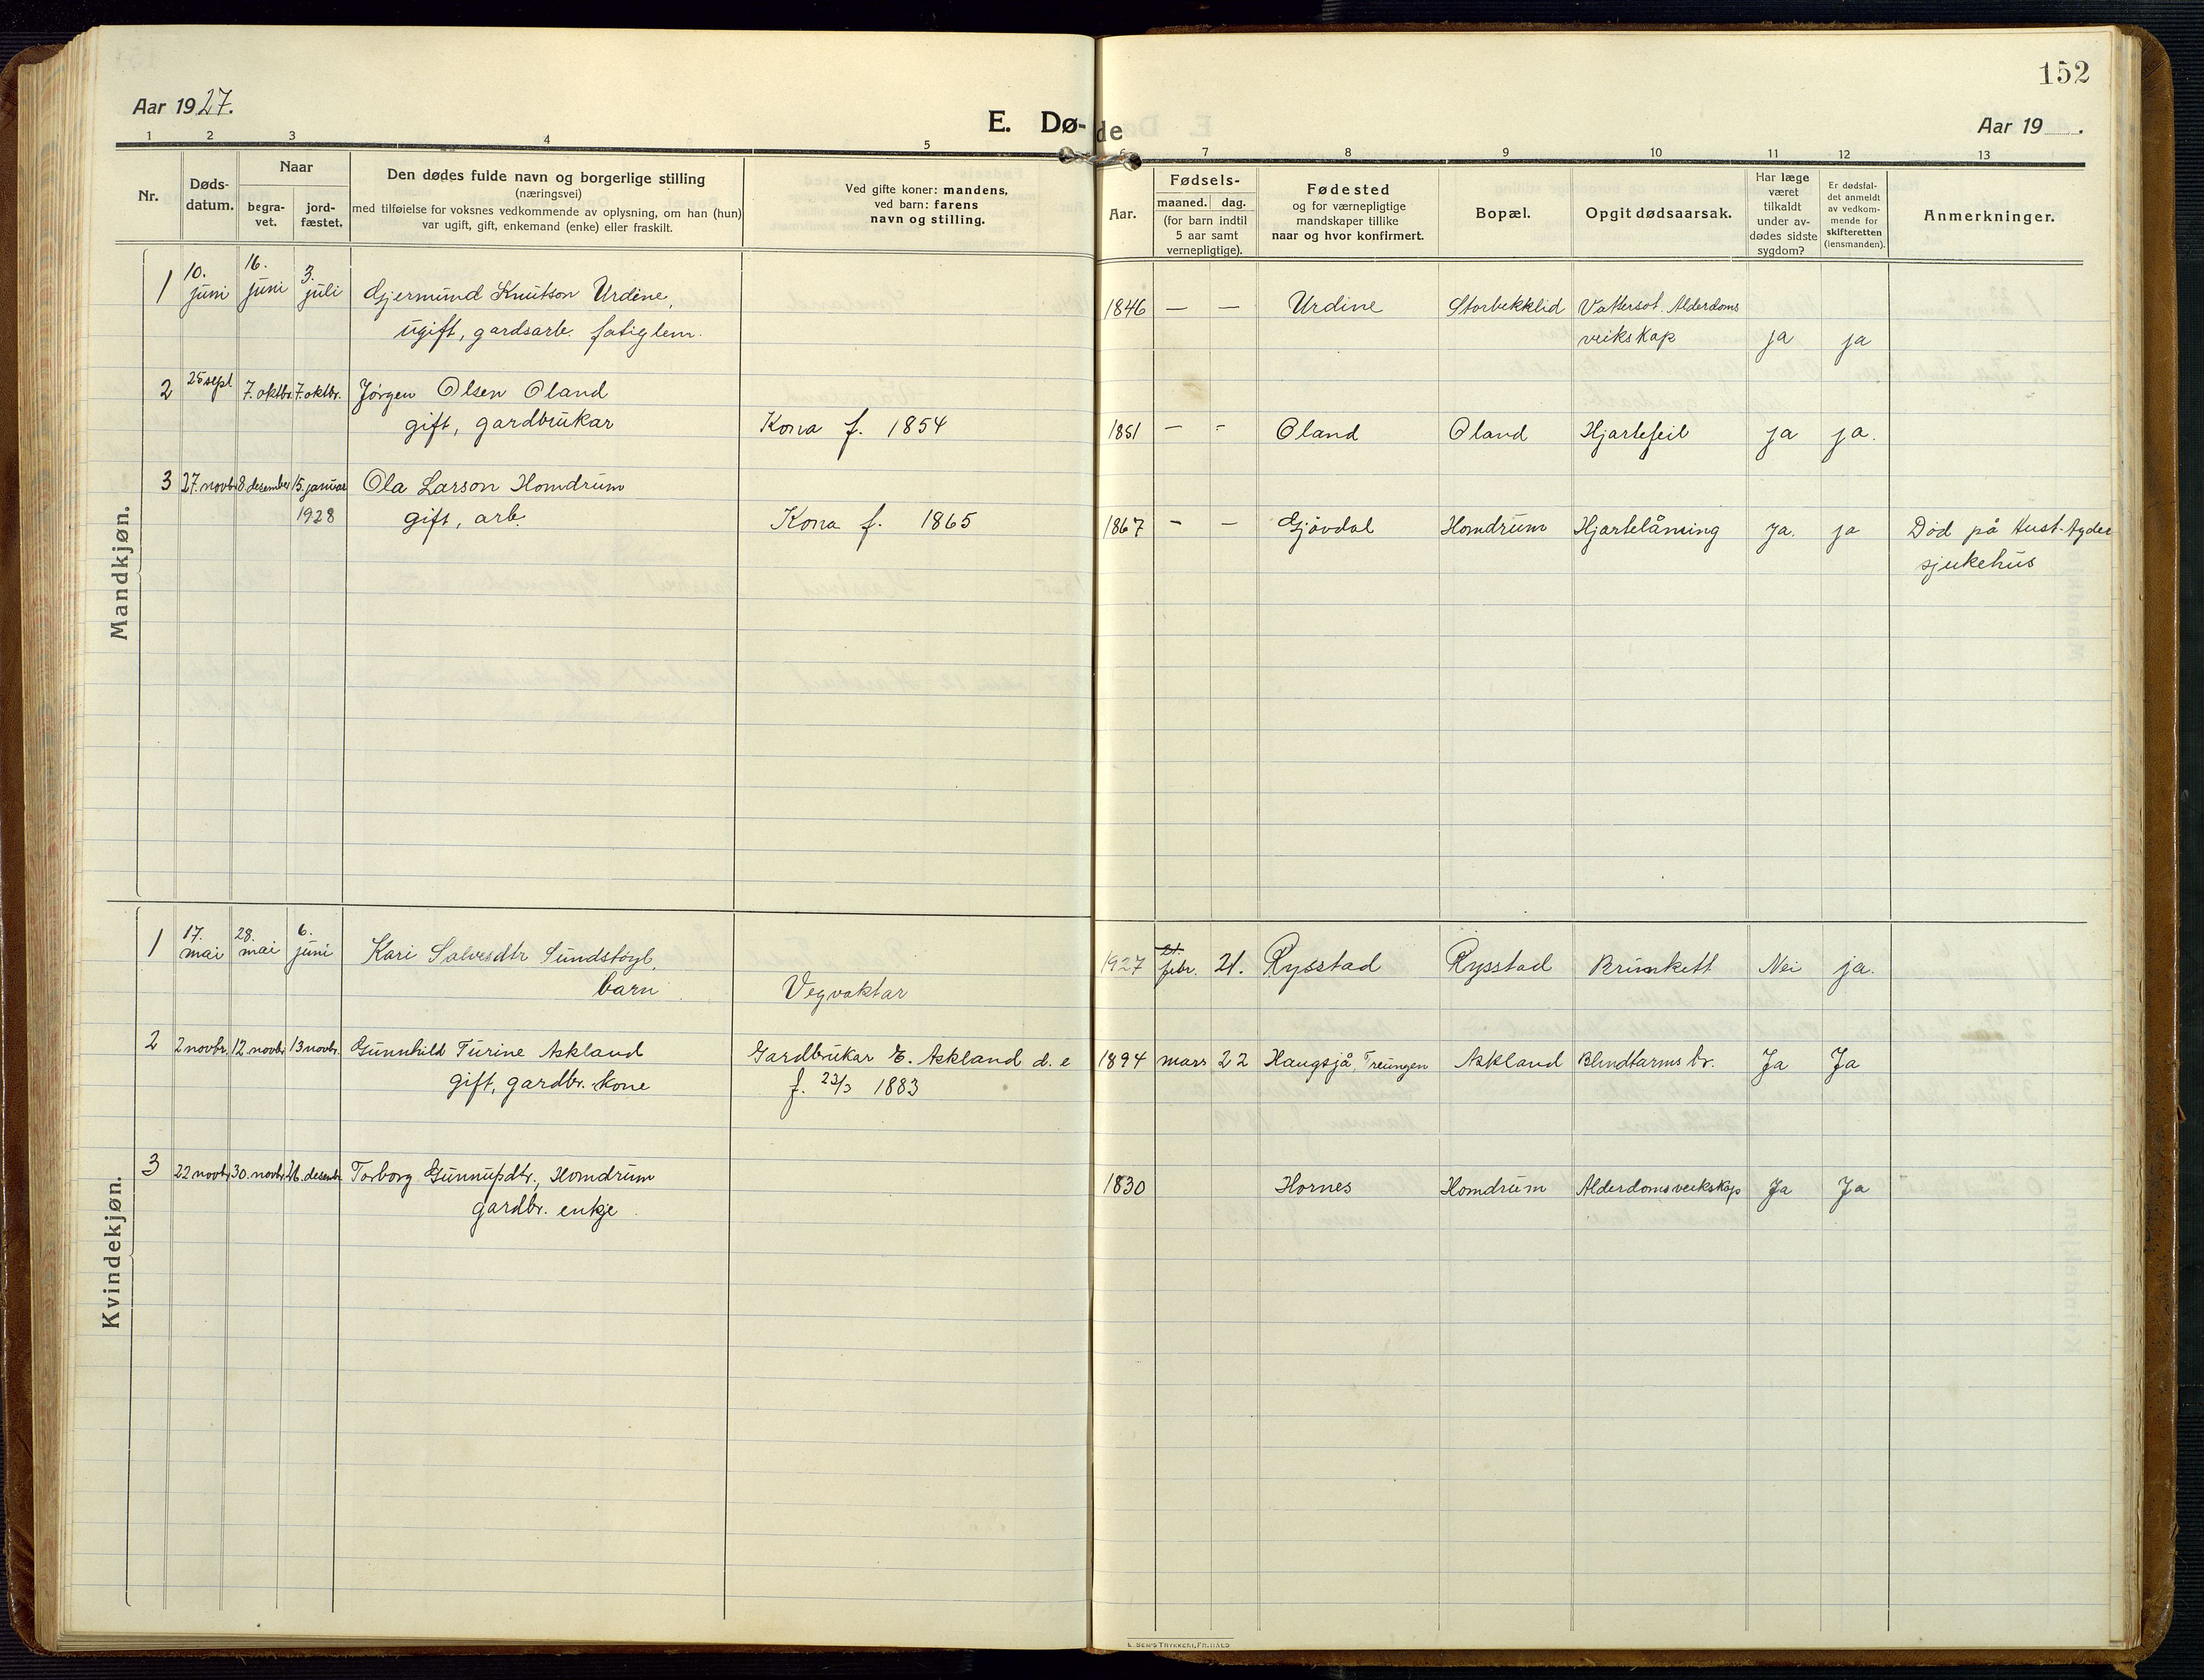 152
Aar 1927.
E. Dø-de
Aar 19 .
1 2 3 4 5 6 7 8 9 10 11 12 13
Nr.
Døds-
datum.
Naar
begra-
vet.
jord-
fæstet.
Den dødes fulde navn og borgerlige stilling
(næringsvei)
med tilføielse for voksnes vedkommende av oplysning, om han (hun)
var ugift, gift, enkemand (enke) eller fraskilt.
Ved gifte koner: mandens,
ved barn: farens
navn og stilling.
Aar.
Fødsels-
maaned. dag.
(for barn indtil
5 aar samt
vernepligtige).
Fødested
og for værnepligtige
mandskaper tillike
naar og hvor konfirmert.
Bopæl.
Opgit dødsaarsak.
Har læge
været
tilkaldt
under av-
dødes sidste
sygdom?
Er dødsfal-
det anmeldt
av vedkom-
mende for
skifteretten
(lensmanden).
Anmerkninger.
Mandkjøn.
1 10. juni 16. juni 3. juli Gjermund Knutson Urdine, 1846 — — Urdine Storbekklid Vattersot. Alderdoms
ugift, gardsarb. fatiglem. veikskap ja ja
2 25 sept. 7. oktbr. 7. oktbr. Jørgen Olsen Oland
gift, gardbrukar Kona f. 1854 1851 - - Oland Oland Hjartefeil ja ja.
3 27. novbr. 8. desember 15. januar Ola Larson Homdrum
1928 gift, arb. Kona f. 1865 1867 - - Gjøvdal Homdrum Hjartelåming Ja. ja Død på Aust-Agder
sjukehus
Kvindekjøn.
1 17. mai 28. mai 6. juni Kari Salvesdtr Sundstøyl, 1927 21. febr. 21. Rysstad Rysstad Brunkett Nei ja.
barn Vegvaktar
2 2 novbr. 12 novbr. 13 novbr. Gunnhild Turine Askland Gardbrukar E. Askland d. e 1894 mars 22 Haugsjå, Treungen Askland Blindtarms br. Ja Ja
gift, gardbr. kone f. 23/3 1883
3 22 novbr. 30. novbr. 26. desembr. Torborg Gunnufsdtr., Homdrum 1830 Hornes Homdrum Alderdomsveikskap Ja Ja
gardbr. enkje.